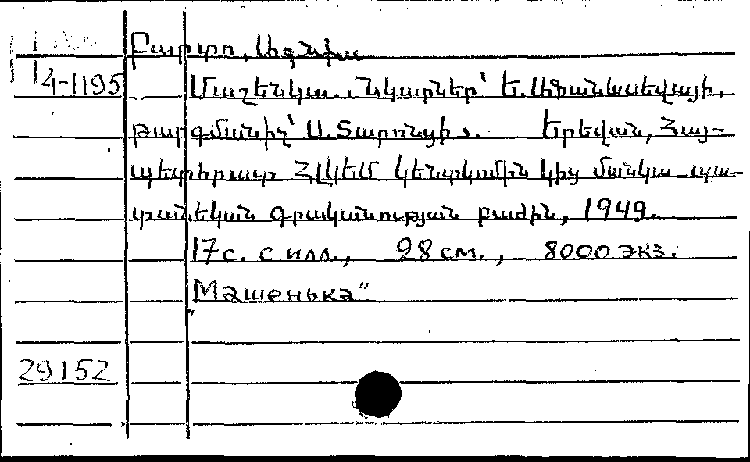 Բարտո, Ագնիա
4-1195 Մաշենկա. Նկարներ՝ Ե. Աֆանասեվայի.
թարգմանիչ՝ Ս. Տարոնցի. Երեվան, Հայ-
պետհրատ ՀԼԿԵՄ կենտկոմին կից մանկա-պա-
տանեկան գրականության բաժին, 1949.
17 с. с илл., 28 см., 8000 экз.
„Машенька"
29152